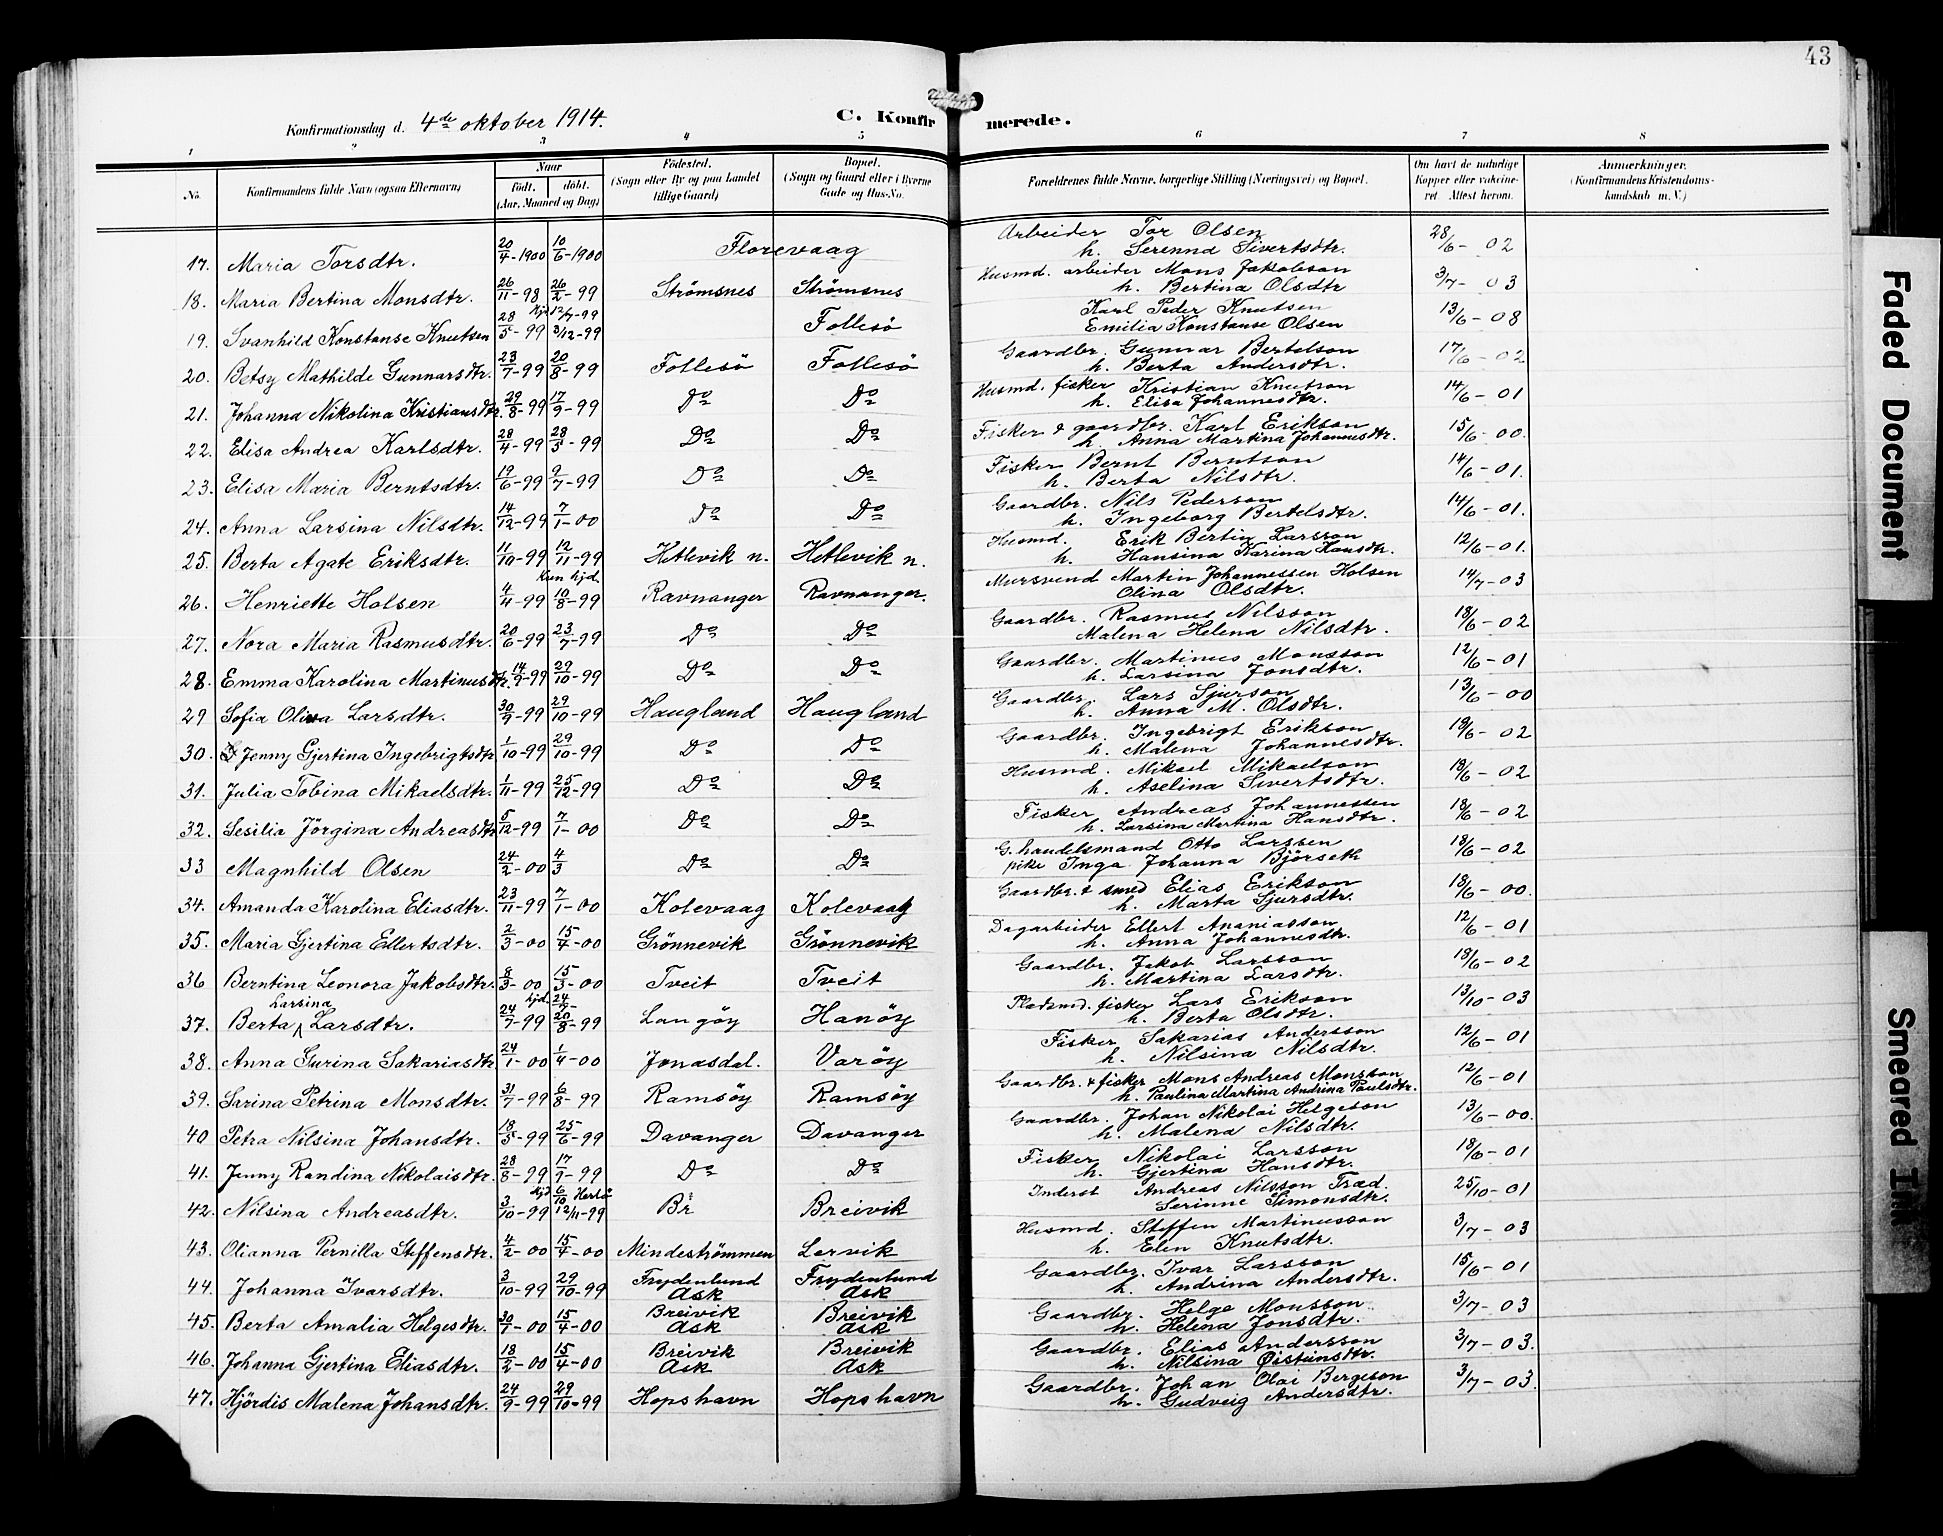 43
Konfirmationsdag d. 4de oktober 1914.
C. Konfirmerede.
1 2 3 4 5 6 7 8
No.
Konfirmandens fulde Navn (ogsaa Efternavn)
Naar
født. døbt.
(Aar, Maaned og Dag)
Fødested.
(Sogn eller By og paa Landet
tillige Gaard)
Bopæl.
(Sogn og Gaard eller i Byerne
Gade og Hus-No.
Forældrenes fulde Navne, borgerlige Stilling (Næringsvei) og Bopæl.
Om havt de naturlige
Kopper eller vakcine-
ret. Attest herom.
Anmærkninger.
(Konfirmandens Kristendoms-
kundskab m. V.)
17. Maria Torsdtr. 20/4-1900 10/6-1900 Florevaag Arbeider Tor Olsen 28/6-02
h. Serenna Sivertsdtr.
18. Maria Bertina Monsdtr. 26/11-98 26/2-99 Strömsnes Strömsnes Husmd. arbeider Mons Jakobson 3/7-03
h. Bertina Olsdtr
19. Svanhild Konstanse Knutsen 28/5-99 hjd 12/7-99 3/12-99 Follesö Karl Peder Knutsen 13/6-08
Emilia Konstanse Olsen
20. Betsy Mathilde Gunnarsdtr. 23/7-99 20/8-99 Follesö Follesö Gaardbr. Gunnar Bertelson 17/6-02
h. Berta Andersdtr.
21. Johanna Nikolina Kristiansdtr. 29/8-99 17/9-99 Do Do Husmd. fisker Kristian Knutson 14/6-01
h. Elisa Johannesdtr.
22. Elisa Andrea Karlsdtr. 28/4-99 28/5-99 Do Do Fisker & gaardbr. Karl Erikson 15/6-00.
h. Anna Martina Johannesdtr.
23. Elisa Maria Berntsdtr. 19/6-99 9/7-99 Do Do Fisker Bernt Berntson 14/6-01.
h. Berta Nilsdtr.
24. Anna Larsina Nilsdtr. 14/12-99 7/1-00 Do Do Gaardbr. Nils Pederson 14/6-01.
h. Ingeborg Bertelsdtr.
25. Berta Agate Eriksdtr. 11/10-99 12/11-99 Hetlevik n. Hetlevik n. Husmd. Erik Bertin Larsson 12/6-01.
h. Hansina Karina Hansdtr.
26. Henriette Holsen 4/4-99 Kun hjd. 10/8-99 Ravnanger Ravnanger. Mursvend Martin Johannessen Holsen 14/7-03
Olina Olsdtr.
27. Nora Maria Rasmusdtr. 20/6-99 23/7-99 Do Do Gaardbr. Rasmus Nilsson 18/6-02
Malena Helena Nilsdtr.
28. Emma Karolina Martinusdtr. 14/9-99 29/10-99 Do Do Gaardbr. Martinus Monsson 12/6-01
h. Larsina Jonsdtr.
29 Sofia Olina Larsdtr. 30/9-99 29/10-99 Haugland Haugland Gaardbr. Lars Sjurson 13/6-00
h. Anna M. Olsdtr.
30. Jenny Gjertina Ingebrigtsdtr 1/10-99 29/10-99 Do Do Gaardbr. Ingebrigt Erikson 18/6-02
h. Malena Johannesdtr.
31. Julia Tobina Mikaelsdtr. 1/11-99 25/12-99 Do Do Husmd. Mikael Mikaelson 18/6-02
h. Aselina Sivertsdtr.
32. Sesilia Jörgina Andreasdtr 5/12-99 7/1-00 Do Do Fisker Andreas Johannessen 18/6-02
h. Larsina Martina Hansdtr.
33 Magnhild Olsen 24/2-00 4/3 Do Do G. handelsmand Otto Larssen 18/6-02
pike Inga Johanna Björseth
34. Amanda Karolina Eliasdtr. 23/11-99 7/1-00 Kolevaag Kolevaag Gaardbr. & smed Elias Erikson 18/6-00.
h. Marta Sjursdtr.
35. Maria Gjertina Ellertsdtr. 2/3-00 15/4-00 Grönnevik Grönnevik Dagarbeider Ellert Ananiasson 12/6-01
h. Anna Johannesdtr.
36 Berntina Leonora Jakobsdtr. 8/3-00 15/3-00 Tveit Tveit Gaardbr. Jakob Larsson 18/6-02
h. Martina Larsdtr.
37. Berta Larsina Larsdtr. 24/7-99 hjd. 24/7- 20/8-99 Langöy Hanöy Pladsmd. fisker Lars Erikson 13/10-03
h. Berta Olsdtr.
38. Anna Gurina Sakariasdtr 24/1-00 1/4-00 Jonasdal. Varöy Fisker Sakarias Andersson 12/6-01
h. Nilsina Nilsdtr.
39. Sarina Petrina Monsdtr. 31/7-99 6/8-99 Ramsöy Ramsöy Gaardbr. & fisker Mons Andreas Monsson 12/6-01
h. Paulina Martina Andrina Paulsdtr.
40 Petra Nilsina Johansdtr. 18/5-99 25/6-99 Davanger Davanger Gaardbr. Johan Nikolai Helgeson 13/6-00.
h. Malena Nilsdtr.
41. Jenny Randina Nikolaisdtr. 28/8-99 17/9-99 Do Do Fisker Nikolai Larsson 18/6-01
h. Gjertina Hansdtr.
42. Nilsina Andreasdtr. 3/10-99 hjd 6/10 12/11-99 Br. Breivik Inderst Andreas Nilsson Træd. 25/10-01
Serinne Simonsdtr.
43. Olianna Pernilla Steffensdtr. 4/2-00 15/4-00 Mindeströmmen Lervik Husmd. Steffen Martinusson 3/7-03
h. Elen Knutsdtr.
44. Johanna Ivarsdtr. 3/10-99 29/10-99 Frydenlund Ask Frydenlund Ask Gaardbr. Ivar Larsson 15/6-01
h. Andrina Andersdtr.
45. Berta Amalia Helgesdtr. 30/7-00 15/4-00 Breivik Ask Breivik Ask Gaardbr. Helge Monsson 3/7-03
h. Helina Jonsdtr.
46. Johanna Gjertina Eliasdtr. 18/2-00 15/4-00 Breivik Ask Breivik Ask Gaardbr. Elias Andersson 3/7-03.
h. Nilsina Øisteinsdtr.
47. Hjördis Malena Johansdtr. 24/9-99 29/10-99 Hopshavn Hopshavn Gaardbr. Johan Olai Bergeson 3/7-03.
h. Gudveig Andersdtr.
Faded Document
Smeared Ink